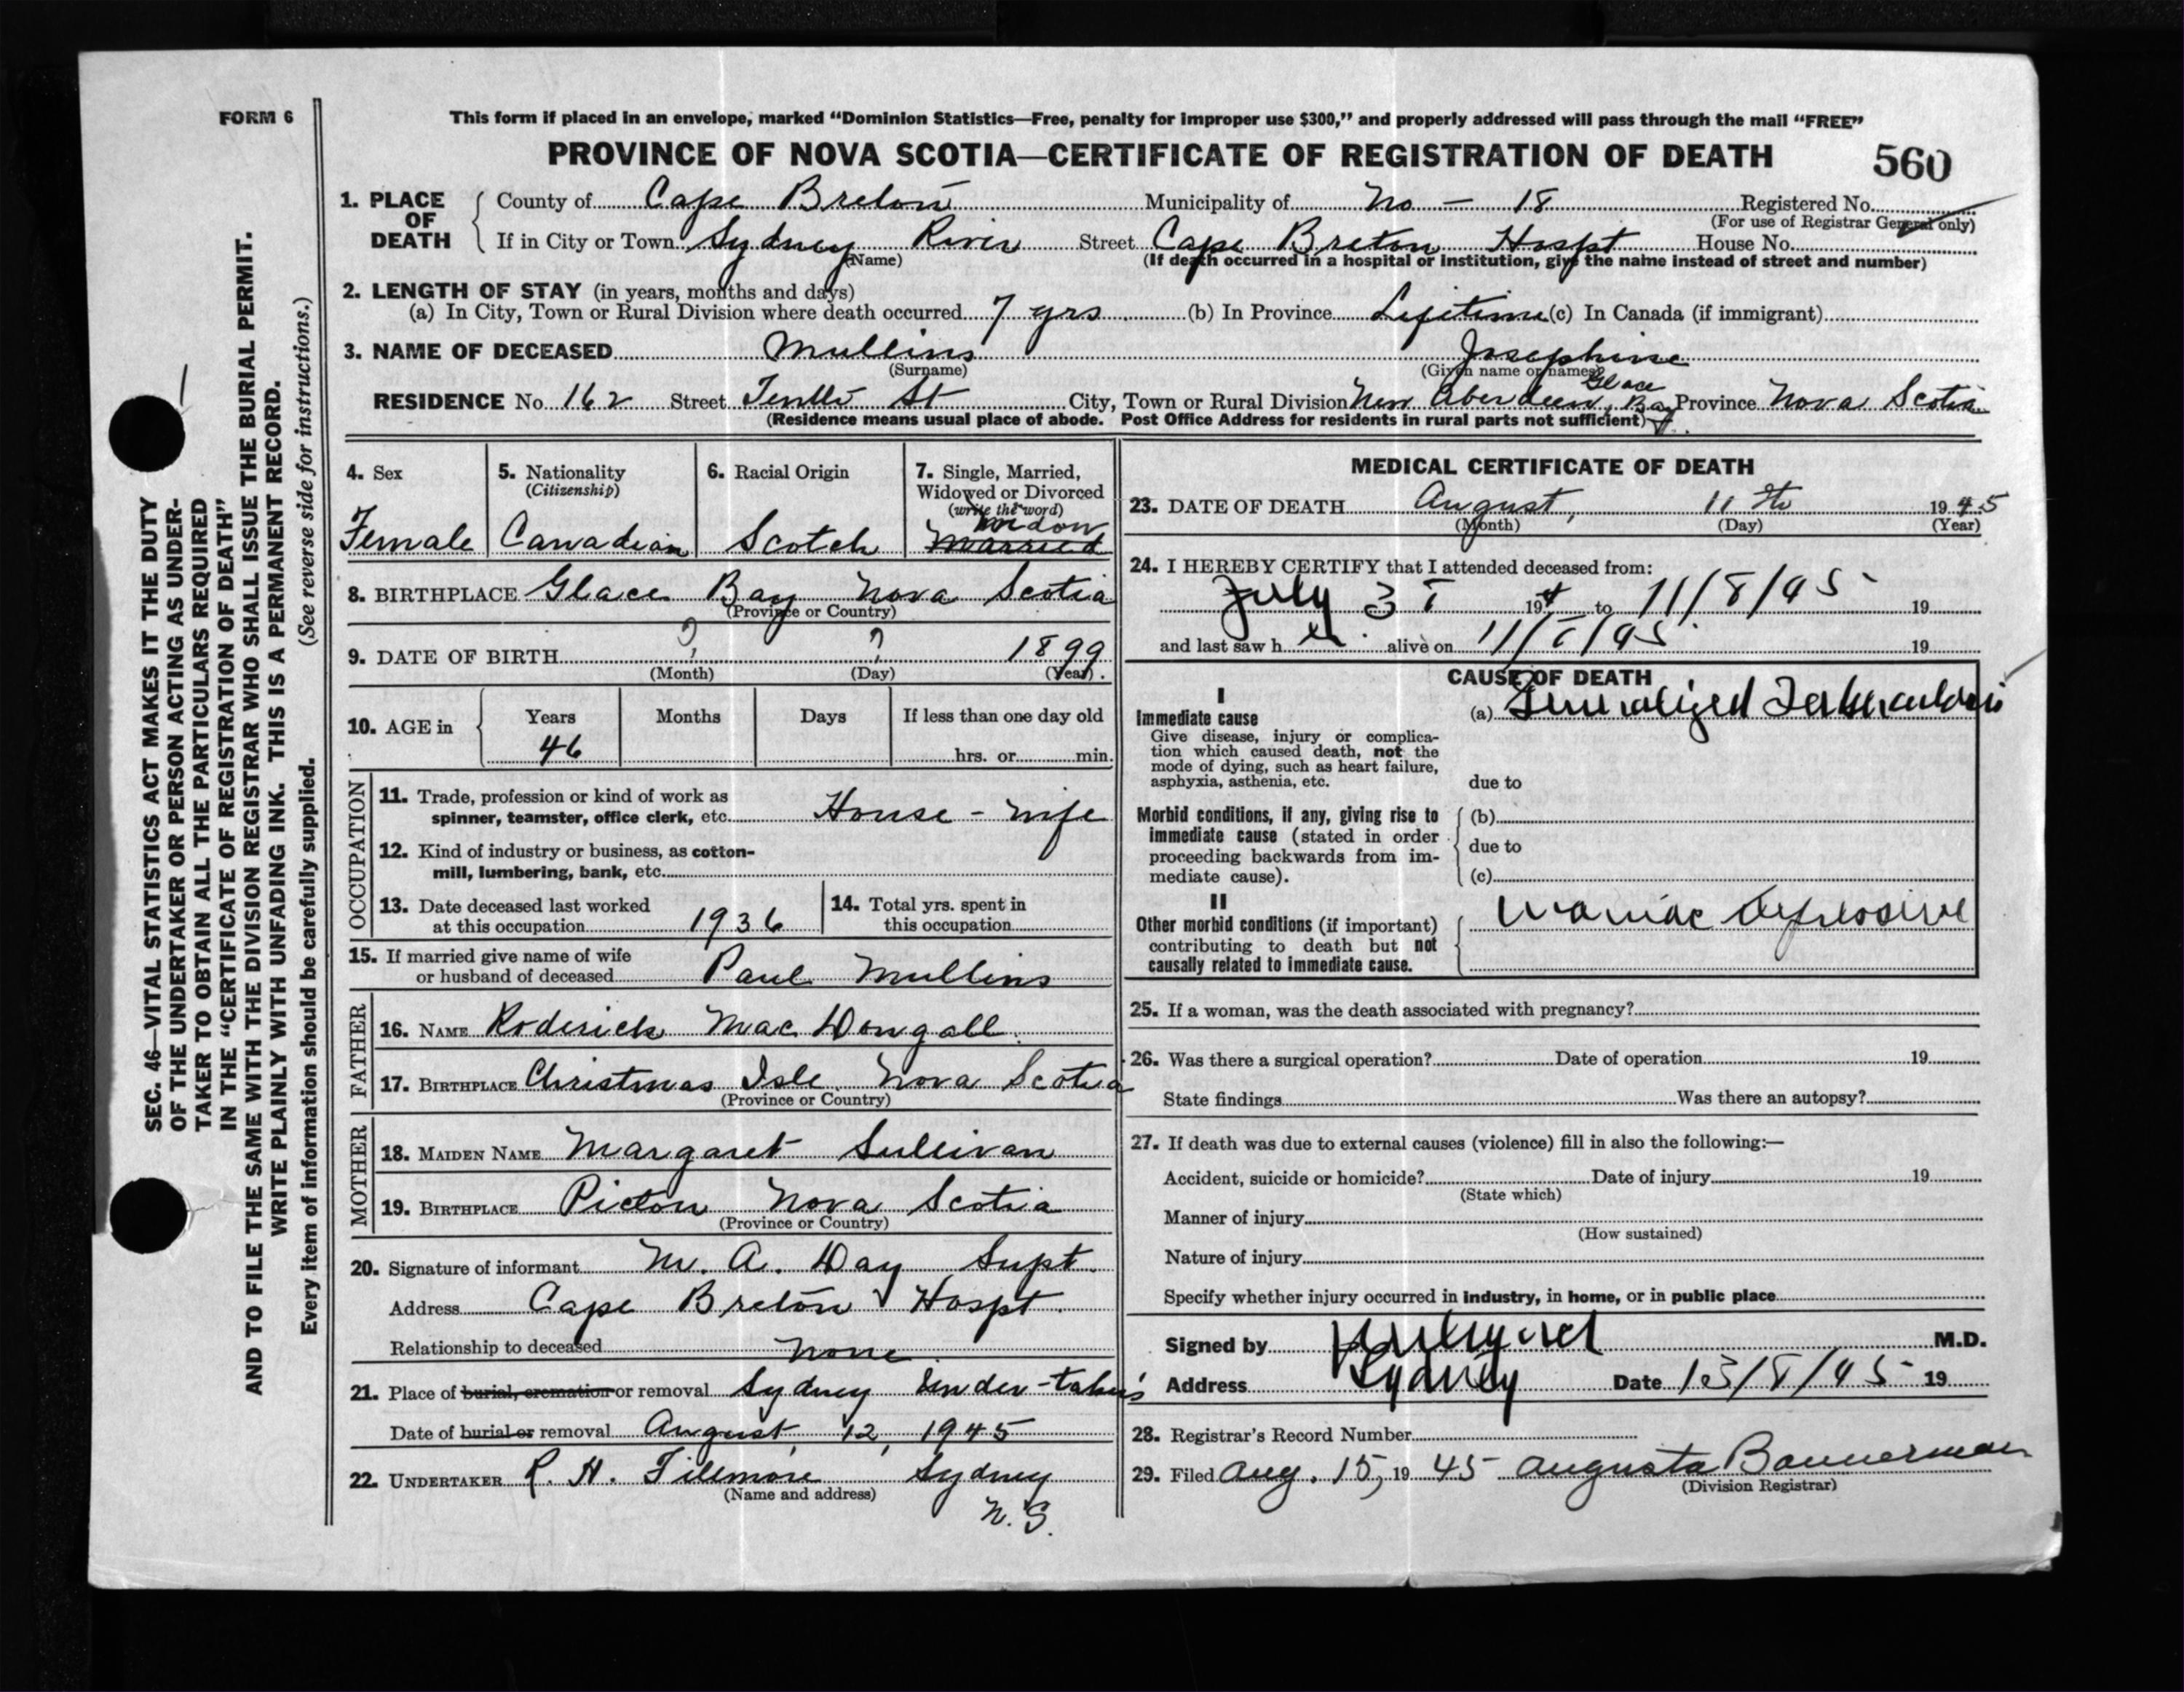 FORM 6
This form if placed in an envelope, marked "Dominion Statistics—Free, penalty for improper use $300," and properly addressed will pass through the mail "FREE"
PROVINCE OF NOVA SCOTIA—CERTIFICATE OF REGISTRATION OF DEATH 560
1. PLACE OF DEATH
County of Cape Breton Municipality of No – 18 Registered No.
(For use of Registrar General only)
If in City or Town Sydney River Street Cape Breton Hospt House No.
(Name) (If death occurred in a hospital or institution, give the name instead of street and number)
2. LENGTH OF STAY (in years, months and days)
(a) In City, Town or Rural Division where death occurred 7 yrs (b) In Province Lifetime (c) In Canada (if immigrant)
3. NAME OF DECEASED Mullins Josephine
(Surname) (Given name or names)
RESIDENCE No. 162 Street Tenth St City, Town or Rural Division New Aberdeen, Glace Bay Province Nova Scotia
(Residence means usual place of abode. Post Office Address for residents in rural parts not sufficient)
4. Sex
Female
5. Nationality
(Citizenship)
Canadian
6. Racial Origin
Scotch
7. Single, Married,
Widowed or Divorced
(write the word)
Widow
Married
8. BIRTHPLACE Glace Bay Nova Scotia
(Province or Country)
9. DATE OF BIRTH ? ? 1899
(Month) (Day) (Year)
10. AGE in
Years Months Days If less than one day old
46 hrs. or min.
OCCUPATION
11. Trade, profession or kind of work as
spinner, teamster, office clerk, etc. House - wife
12. Kind of industry or business, as cotton-
mill, lumbering, bank, etc.
13. Date deceased last worked
at this occupation 1936
14. Total yrs. spent in
this occupation
15. If married give name of wife
or husband of deceased Paul Mullins
FATHER
16. NAME Roderick MacDougall
17. BIRTHPLACE Christmas Isle. Nova Scotia
(Province or Country)
MOTHER
18. MAIDEN NAME Margaret Sullivan
19. BIRTHPLACE Pictou Nova Scotia
(Province or Country)
20. Signature of informant M. A. Day Supt.
Address Cape Breton Hospt.
Relationship to deceased None
21. Place of burial, cremation or removal Sydney Under-takers
Date of burial or removal August, 12, 1945
22. UNDERTAKER R. H. Fillmore Sydney
(Name and address)
N.S.
MEDICAL CERTIFICATE OF DEATH
23. DATE OF DEATH August, 11th 1945
(Month) (Day) (Year)
24. I HEREBY CERTIFY that I attended deceased from:
July 194 to 11/8/45 19
and last saw her alive on 11/8/45 19
CAUSE OF DEATH
I
Immediate cause
Give disease, injury or complica-
tion which caused death, not the
mode of dying, such as heart failure,
asphyxia, asthenia, etc.
(a) Generalized Tuberculosis
due to
Morbid conditions, if any, giving rise to
immediate cause (stated in order
proceeding backwards from im-
mediate cause).
(b)
due to
(c)
II
Other morbid conditions (if important)
contributing to death but not
causally related to immediate cause.
Maniac Depressive
25. If a woman, was the death associated with pregnancy?
26. Was there a surgical operation? Date of operation 19
State findings Was there an autopsy?
27. If death was due to external causes (violence) fill in also the following:—
Accident, suicide or homicide? Date of injury 19
(State which)
Manner of injury
(How sustained)
Nature of injury
Specify whether injury occurred in industry, in home, or in public place
Signed by M.D.
Address Sydney Date 13/8/45 19
28. Registrar's Record Number
29. Filed Aug. 15, 1945 Augusta Bannerman
(Division Registrar)
SEC. 46—VITAL STATISTICS ACT MAKES IT THE DUTY
OF THE UNDERTAKER OR PERSON ACTING AS UNDER-
TAKER TO OBTAIN ALL THE PARTICULARS REQUIRED
IN THE "CERTIFICATE OF REGISTRATION OF DEATH"
AND TO FILE THE SAME WITH THE DIVISION REGISTRAR WHO SHALL ISSUE THE BURIAL PERMIT.
WRITE PLAINLY WITH UNFADING INK. THIS IS A PERMANENT RECORD.
Every item of information should be carefully supplied. (See reverse side for instructions.)